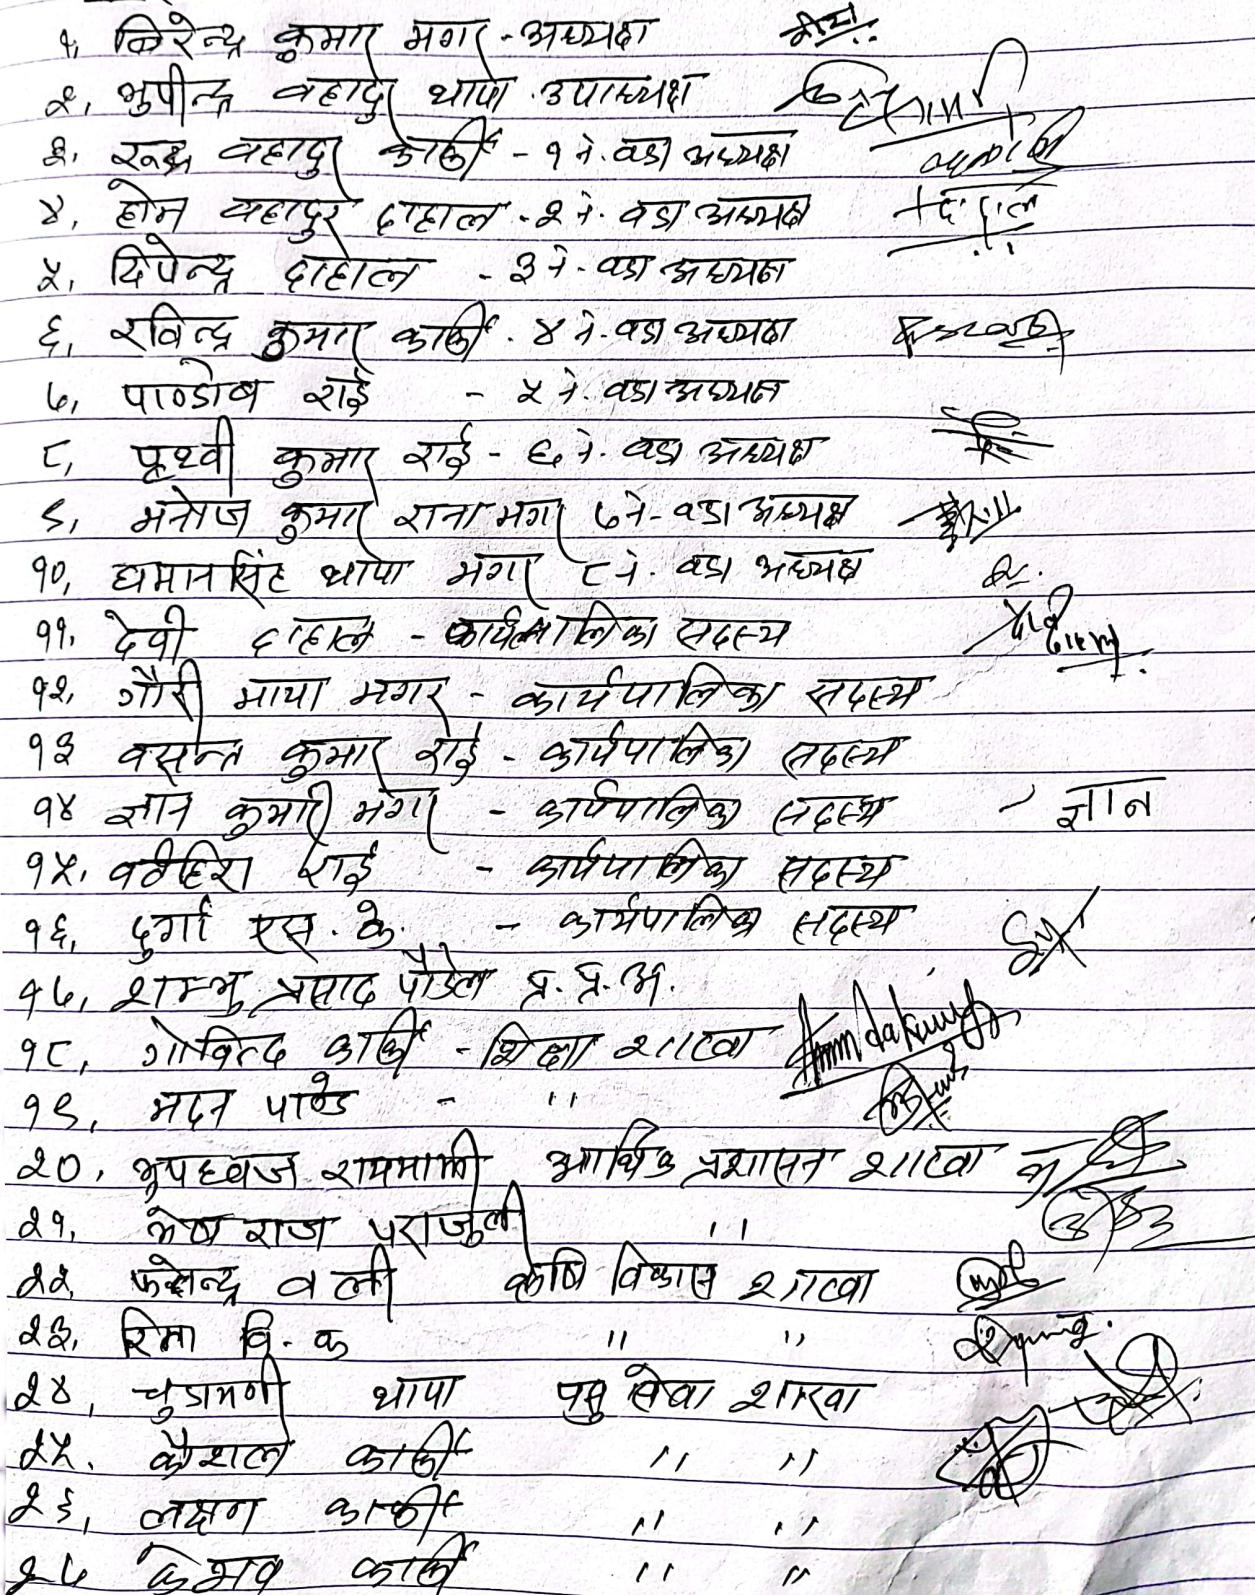 १, निरेन्द्र कुमार मगर - अध्यक्ष
२, भुपीन्द्र वहादुर थापा उपाध्यक्ष
३, रुद्र वहादुर कार्की - १ नं. वडा अध्यक्ष
४, होम वहादुर दाहाल - २ नं. वडा अध्यक्ष
५, दिपेन्द्र दाहाल - ३ नं. वडा अध्यक्ष
६, रविन्द्र कुमार कार्की - ४ नं. वडा अध्यक्ष
७, पाण्डोब राई - ५ नं. वडा अध्यक्ष
८, पृथ्वी कुमार राई - ६ नं. वडा अध्यक्ष
९, मनोज कुमार राना मगर ७ नं. वडा अध्यक्ष
१०, धमानसिंह थापा मगर ८ नं. वडा अध्यक्ष
११, देवी दाहाल - कार्यपालिका सदस्य
१२, गौरी माया मगर - कार्यपालिका सदस्य
१३ वसन्त कुमार राई - कार्यपालिका सदस्य
१४ ज्ञान कुमारी मगर - कार्यपालिका सदस्य ज्ञान
१५. राई - कार्यपालिका सदस्य
१६, दुर्गा एस. के. - कार्यपालिका सदस्य
१७, शम्भु प्रसाद पौडेल प्र. प्र. अ.
१८, गोविन्द कार्की - शिक्षा शाखा
१९, मदन पाण्डे - "
२०, भूपध्वज रायमाझी आर्थिक प्रशासन शाखा
२१, भेष राज पराजुली "
२२, वली कृषि विकास शाखा
२३, रिमा वि. क " "
२४, चुडामणी थापा पशु सेवा शाखा
२५. कौशल कार्की " "
२६, लक्षण कार्की " "
२७ केशव कार्की " "